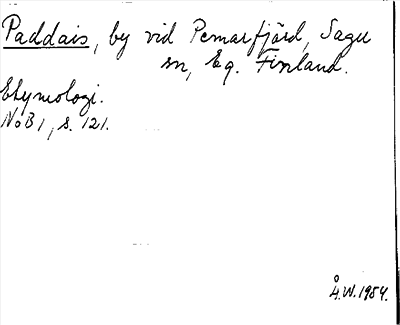 Paddais, by vid Pemarfjärd, Sagu
sn, Eg. Finland.
Etymologi.
NoB 1, s. 121.
Å.W. 1954.